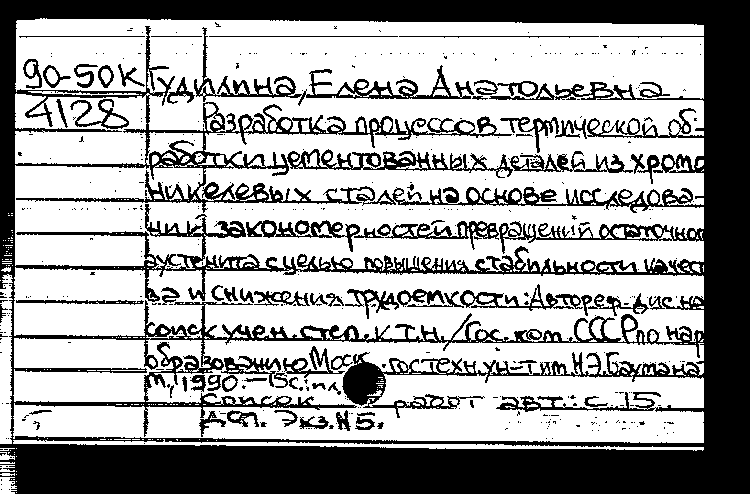 90-50К Гудилина, Елена Анатольевна
4128 Разработка процессов термической об-
работки цементованных деталей из хромо
никелевых сталей на основе исследова-
ний закономерностей превращений остаточного
аустенита с целью повышения стабильности качест
ва и снижения трудоемкости: Автореф. дис. на
соиск. учен. степ. к.т.н. / Гос. ком. СССР по нар
образованию Моск. гос. техн. ун-т им. Н.Э. Баумана
М., 1990. – 15 с.: ил
список работ авт.: с. 15.
ДСП. Экз. N 5.